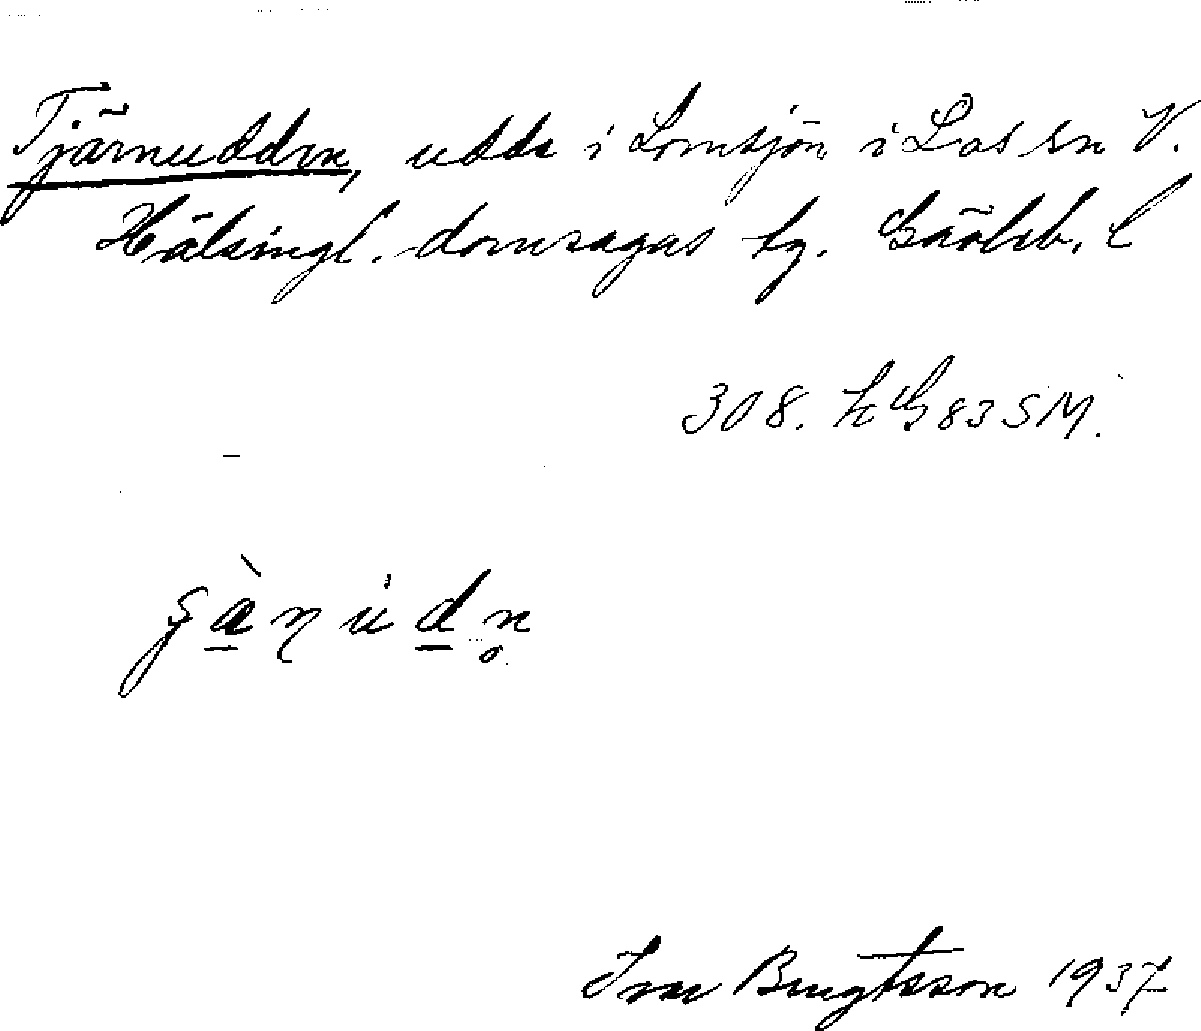 Tjärnudden, udde i Lomsjön i Los sn V.
Hälsingl. domsagas tg. Gävleb. l
308. HG 83 SM.
Ivar Bengtsson 1937